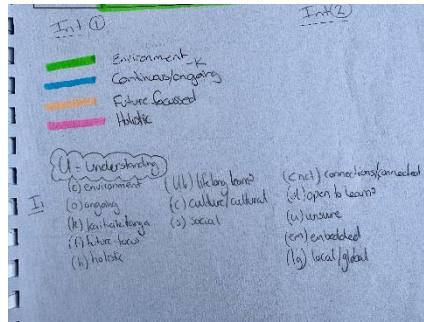 Int ①
Int ②
Environment -K
Continuous/ongoing
Future focussed
Holistic
U - Understanding
I,
(e) environment
(o) ongoing
(k) kaitiakitanga
(f) future focus
(h) holistic
(c) culture/cultural
(s) social
(cnct) connections/connected
(u) unsure
(em) embedded
(lg) local/global